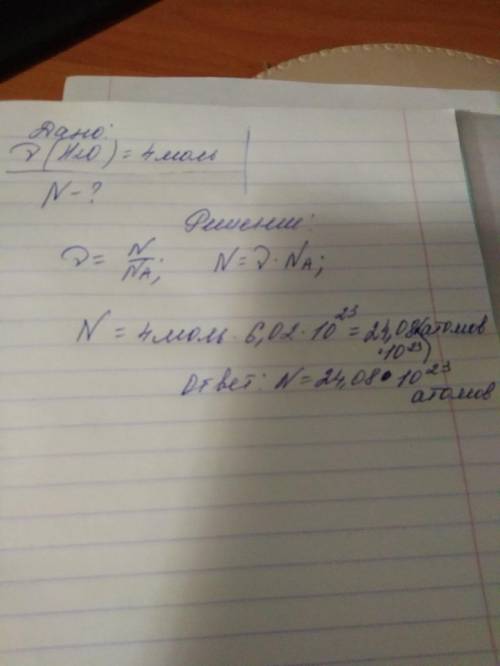 Дано:
ν(H2O) = 4 моль
N - ?
Решение:
ν = N/NA; N = ν · NA;
N = 4 моль · 6,02 · 10^23 = 24,08 (атомов
· 10^23)
Ответ: N = 24,08 · 10^23
атомов